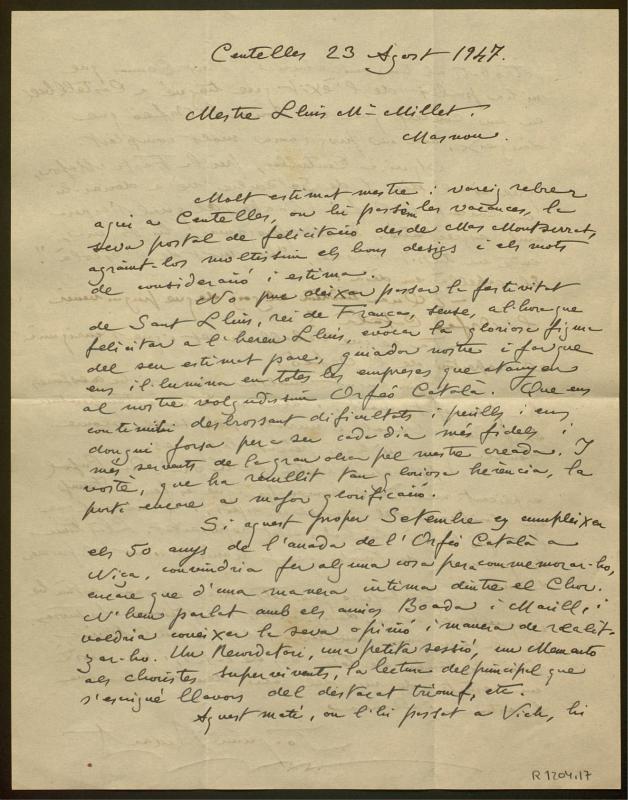 Centelles 23 Agost 1947.
Mestre Lluis Mª Millet.
Masnou.
Molt estimat mestre: vareig rebrer
aqui a Centelles, on hi passèm les vacances, la
seva postal de felicitació desde Mas Montserrat,
agraint-los moltissim els bons desigs i els mots
de consideració i estima.
No puc deixar passar la festivitat
de Sant Lluis, rei de França, sense, al hora que
felicitar a l'hereu Lluis, evocar la gloriosa figura
del seu estimat pare, guiador nostre i far que
ens il·lumina en totes les empreses que atanyen
al nostre volgudissim Orfeó Català. Que ens
continui desbrossant dificultats i perills i ens
dongui forsa per a ser cada dia més fidels i
més servents de la gran obra pel mestre creada. I
vostè, que ha recullit tan gloriosa herència, la
porti encare a major glorificació.
Si aquest proper Setembre es cumpleixen
els 50 anys de l'anada de l'Orfeó Català a
Niça, convindria fer alguna cosa per a commemorar-ho,
encare que d'una manera intima dintre el Chor.
N'hem parlat amb els amics Boada i Marill, i
voldria coneixer la seva opinió i manera de realit-
zar-ho. Un Recordatori, una petita sessió, un Memento
als choristes supervivents, la lectura del principal que
s'escrigué llavors del destacat triomf, etc.
Aquest matí, on l'hi passat a Vich, hi
R 1204.17